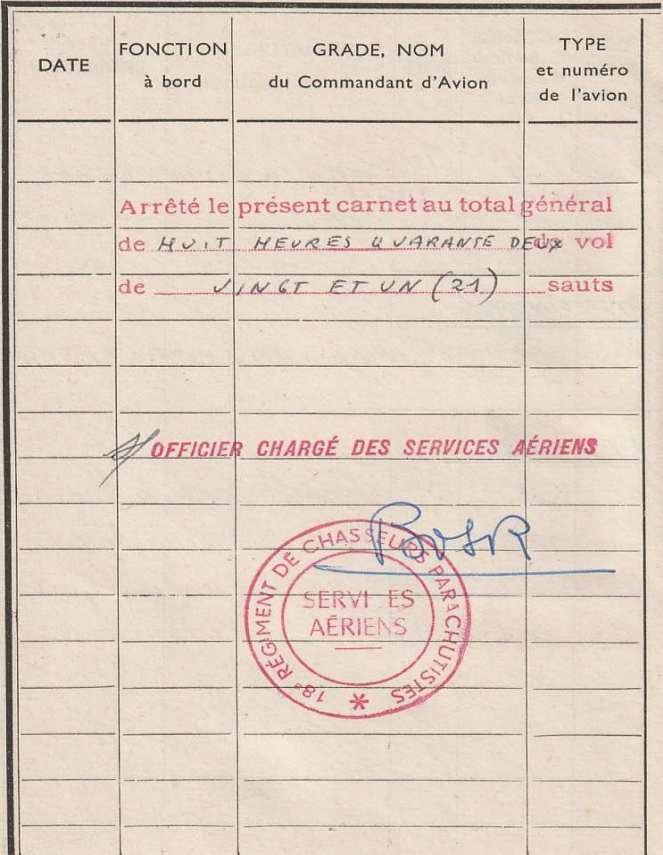 DATE
FONCTION
à bord
GRADE, NOM
du Commandant d'Avion
TYPE
et numéro
de l'avion
Arrêté le présent carnet au total général
de HUIT HEURES QUARANTE DEUX de vol
de VINGT ET UN (21) sauts
OFFICIER CHARGÉ DES SERVICES AÉRIENS
18e RÉGIMENT DE CHASSEURS PARACHUTISTES
SERVI ES
AÉRIENS